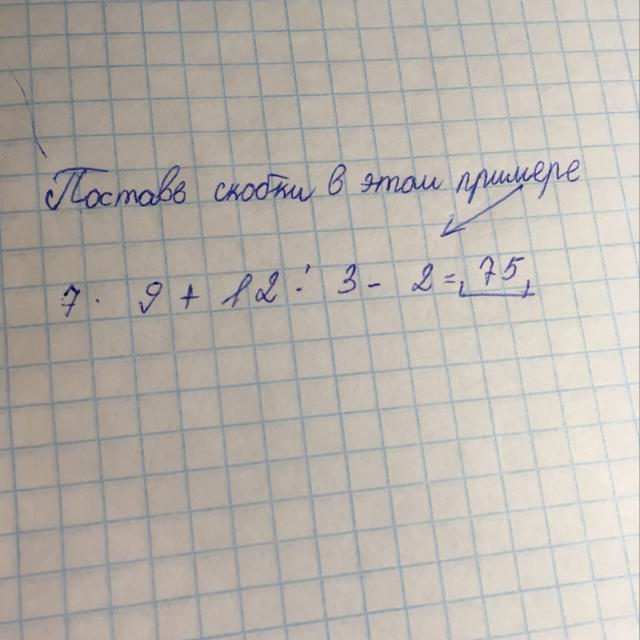 Поставь скобки в этом примере
7 · 9 + 12 : 3 - 2 = 75